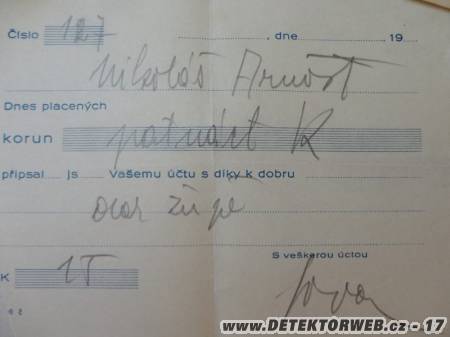 Číslo 127 , dne 19
Nikoláš Arnošt
Dnes placených
korun patnáct K
připsal js Vašemu účtu s díky k dobru
župě
S veškerou úctou
K 15
www.DETEKTORWEB.cz - 17